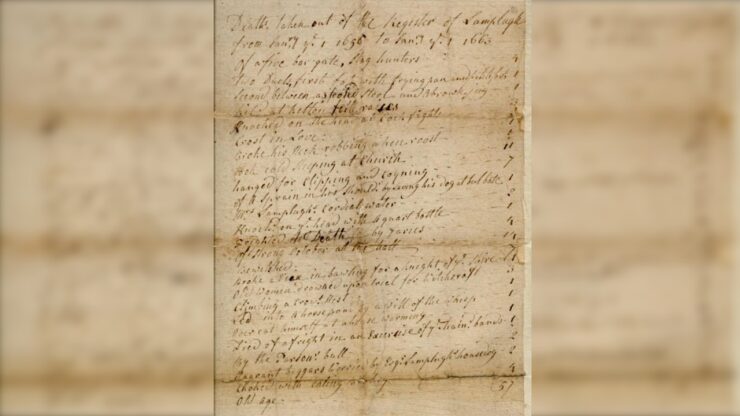 Deaths taken out of the Register of Lamplugh
from Janry ye 1 1656 to Janry ye 1 1663
Of a five bar gate, Stag hunters
Two Duels, first fought with frying pan and
Second between a Stool and a brown Jug 1
Kild at Kelton fell races 3
Knocked on the head at Cock fight
Crost in Love
Broke his Neck robbing a hen roost 1
Took cold Sleeping at Church 11
hanged for Clipping and Coyning 7
of a Sprain in his Shoulder by saving his dog at bull bate 1
Mrs Lamplugh's Cordial water 2
Knockd on ye head with a quart bottle 1
frighted to Death by faries 4
Of strong October at the hall 14
bewitched 7
Broke a Vein in bawling for a Knight of ye Shire 1
Old Women drowned upon trial for Witchcraft 3
Climbing a Crows Nest 1
Led into a horse pond by a will of the whisp 1
Over eat himself at a house warming 1
Died of a fright in an Exercise of ye Traind bands 1
By the Parsons bull 2
Vagrant beggars worried by Esqr Lamplughs housedog 2
Choked with eating barley 4
Old Age 57